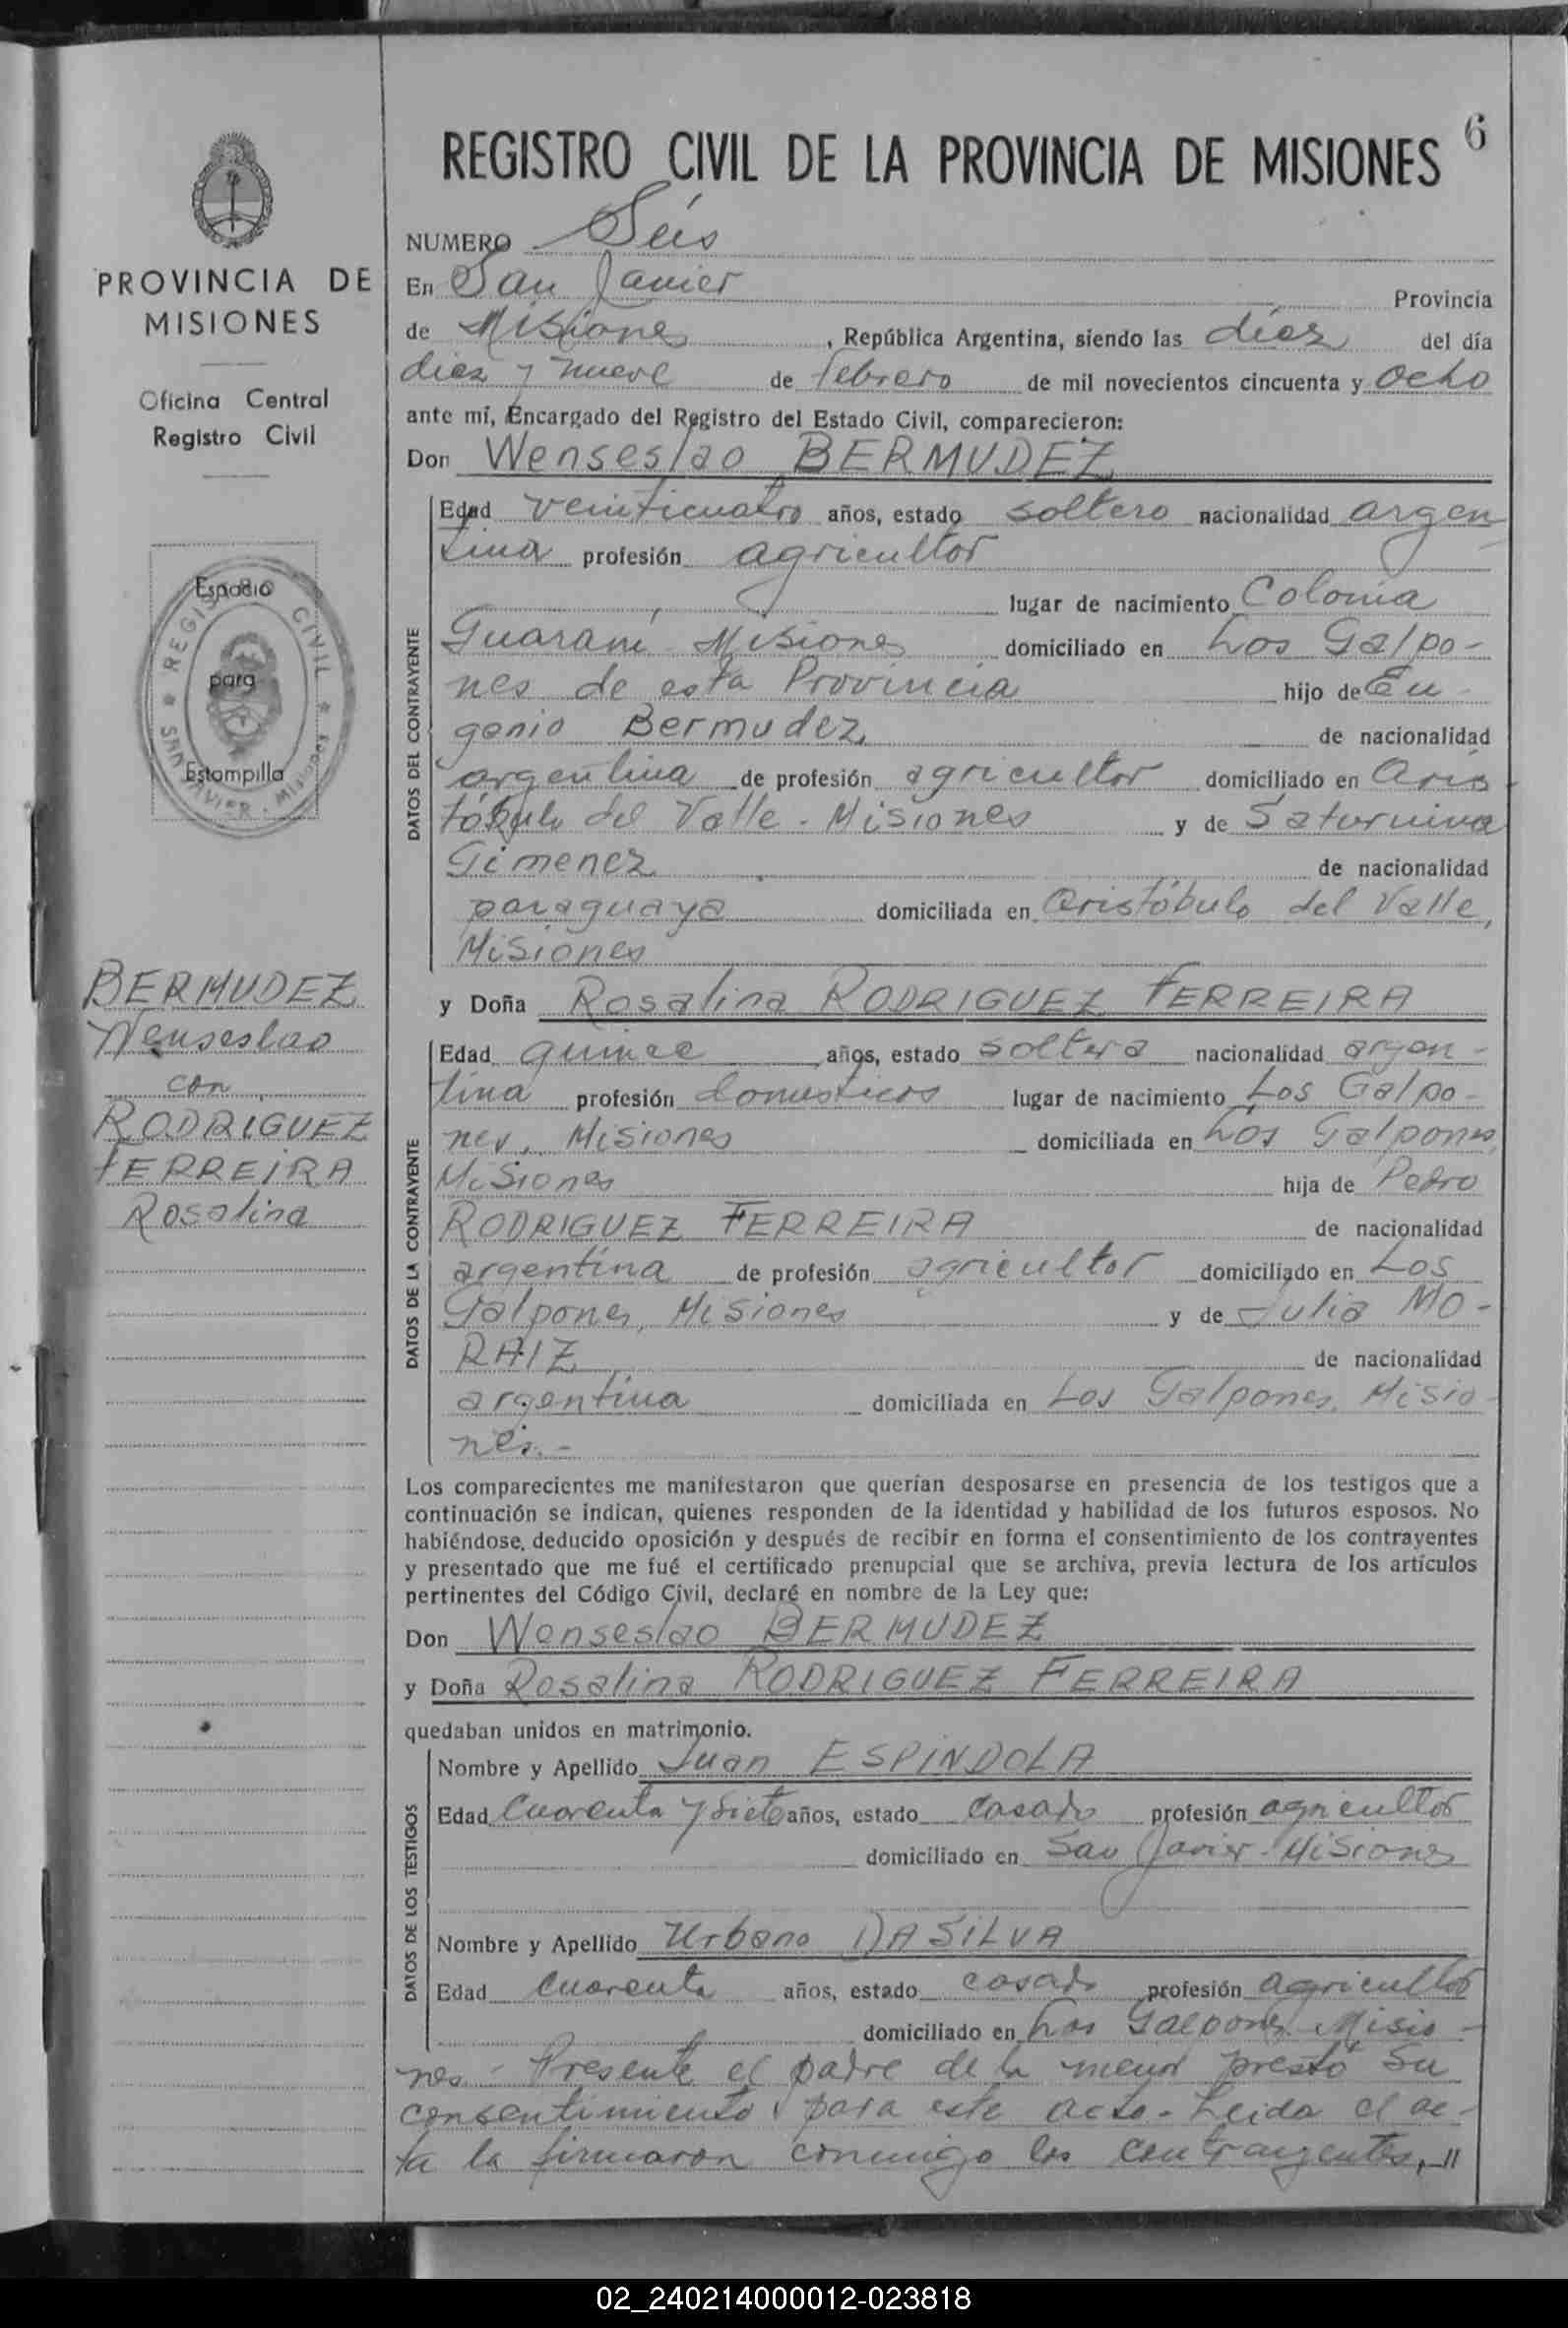 6
REGISTRO CIVIL DE LA PROVINCIA DE MISIONES
PROVINCIA DE
MISIONES
Oficina Central
Registro Civil
Espacio
para
Estampilla
REGISTRO CIVIL * SAN JAVIER - Misiones *
BERMUDEZ
Wenseslao
con
RODRIGUEZ
FERREIRA
Rosalina
NUMERO Seis
En San Javier Provincia
de Misiones, República Argentina, siendo las diez del día
diez y nueve de febrero de mil novecientos cincuenta y ocho
ante mí, Encargado del Registro del Estado Civil, comparecieron:
Don Wenseslao BERMUDEZ
DATOS DEL CONTRAYENTE
Edad veinticuatro años, estado soltero nacionalidad argen-
tina profesión agricultor
lugar de nacimiento Colonia
Guaraní - Misiones domiciliado en Los Galpo-
nes de esta Provincia hijo de Eu-
genio Bermudez de nacionalidad
argentina de profesión agricultor domiciliado en Aris-
tóbulo del Valle - Misiones y de Saturnina
Gimenez de nacionalidad
paraguaya domiciliada en Aristóbulo del Valle,
Misiones
y Doña Rosalina RODRIGUEZ FERREIRA
DATOS DE LA CONTRAYENTE
Edad quince años, estado soltera nacionalidad argen-
tina profesión domesticos lugar de nacimiento Los Galpo-
nes, Misiones domiciliada en Los Galpones,
Misiones hija de Pedro
RODRIGUEZ FERREIRA de nacionalidad
argentina de profesión agricultor domiciliado en Los
Galpones, Misiones y de Julia MO-
RAIZ de nacionalidad
argentina domiciliada en Los Galpones, Misio-
nes.-
Los comparecientes me manifestaron que querían desposarse en presencia de los testigos que a
continuación se indican, quienes responden de la identidad y habilidad de los futuros esposos. No
habiéndose, deducido oposición y después de recibir en forma el consentimiento de los contrayentes
y presentado que me fué el certificado prenupcial que se archiva, previa lectura de los artículos
pertinentes del Código Civil, declaré en nombre de la Ley que:
Don Wenseslao BERMUDEZ
y Doña Rosalina RODRIGUEZ FERREIRA
quedaban unidos en matrimonio.
DATOS DE LOS TESTIGOS
Nombre y Apellido Juan ESPINDOLA
Edad Cuarenta y siete años, estado casado profesión agricultor
domiciliado en San Javier - Misiones
Nombre y Apellido Urbano DA SILVA
Edad cuarenta años, estado casado profesión agricultor
domiciliado en Los Galpones Misio-
nes - Presente el padre de la menor prestó su
consentimiento para este acto - Leida el ac-
ta la firmaron conmigo los contrayentes, //
02_240214000012-023818